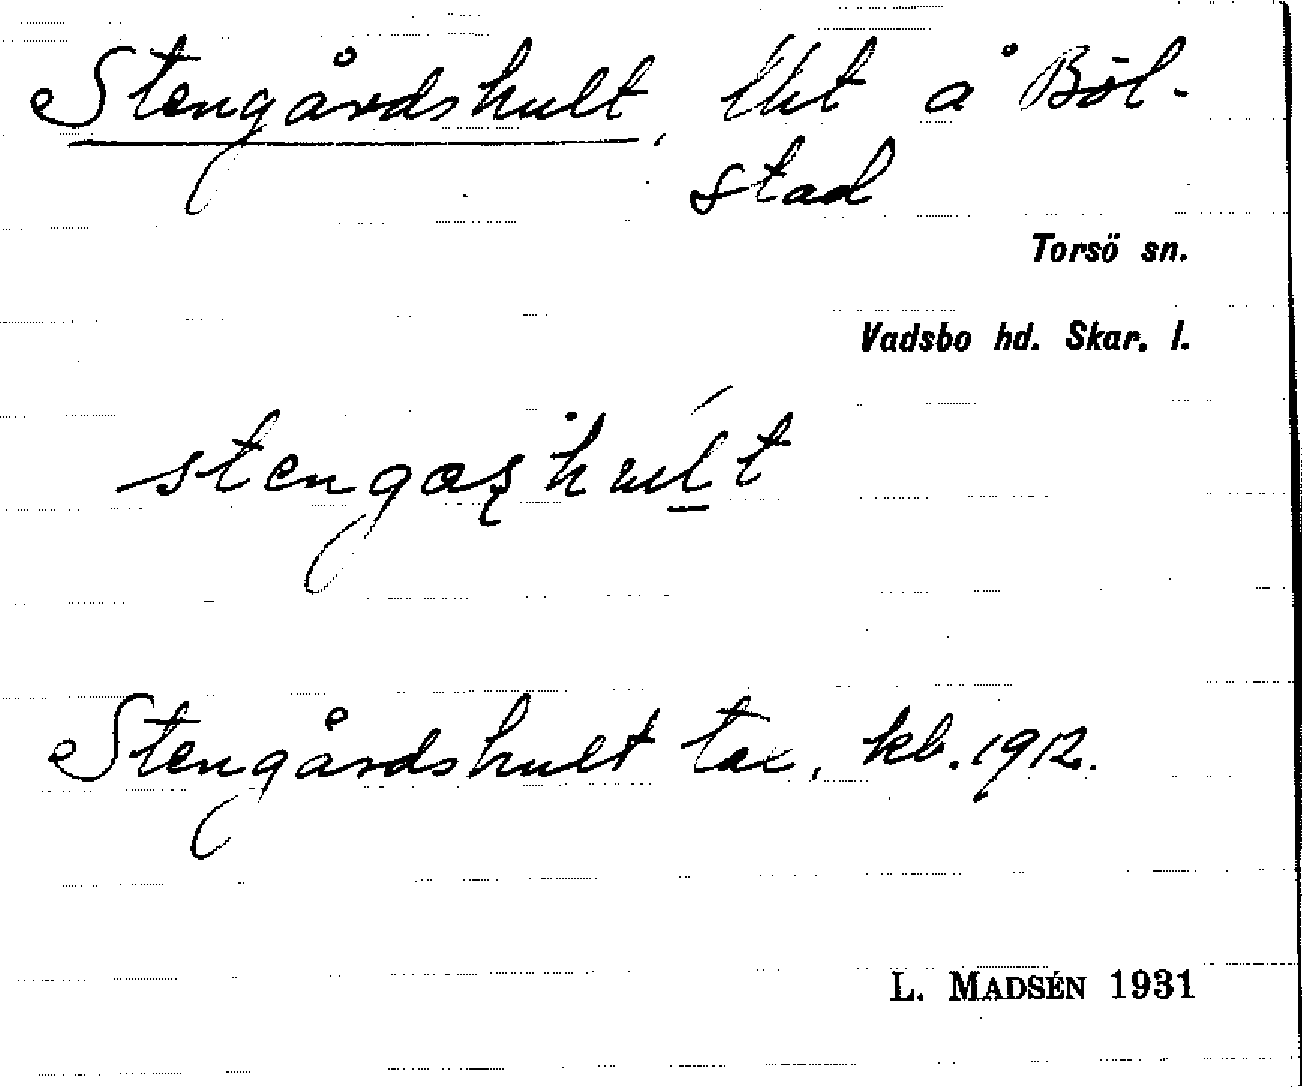 Stengårdshult, lht å Böl-
stad
Torsö sn.
Vadsbo hd. Skar. l.
Stengårdshult tax. kb. 1912.
L. MADSÉN 1931